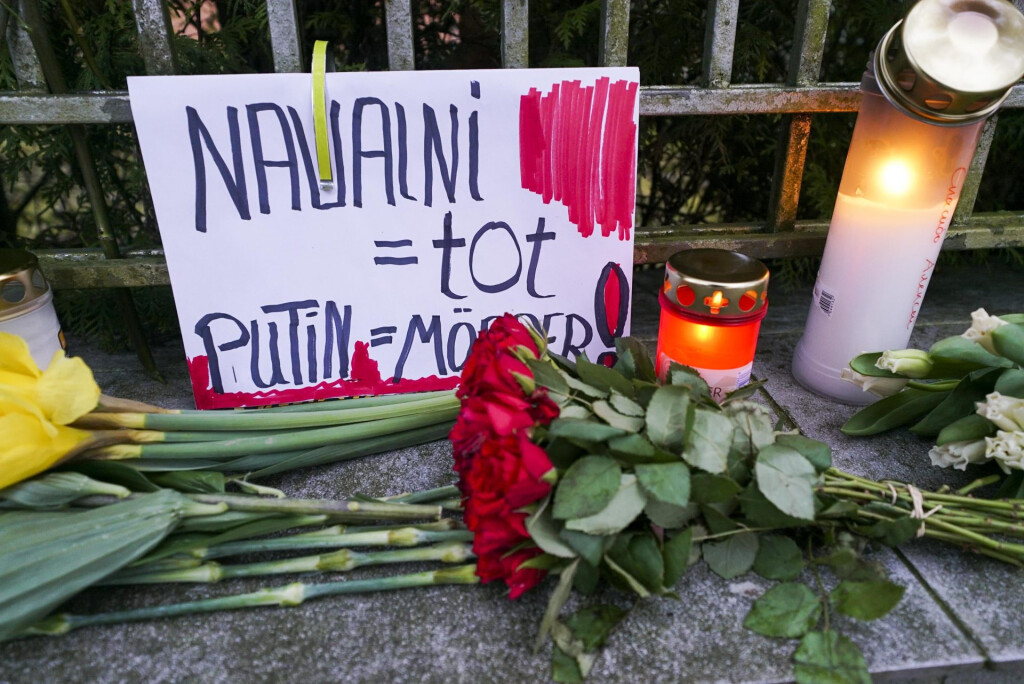 NAVALNI
= tot
PUTIN = MÖRDER!